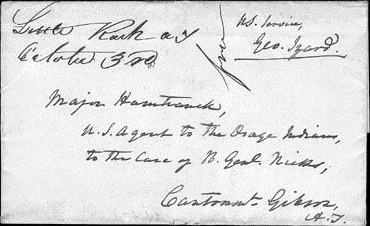 Little Rock A T
October 3rd
free
U.S. Service,
Geo. Izard.
Major Hamtramck,
U.S. Agent to the Osage Indians,
to the Care of B. Genl. Nicks,
Cantonmt. Gibson,
A.T.